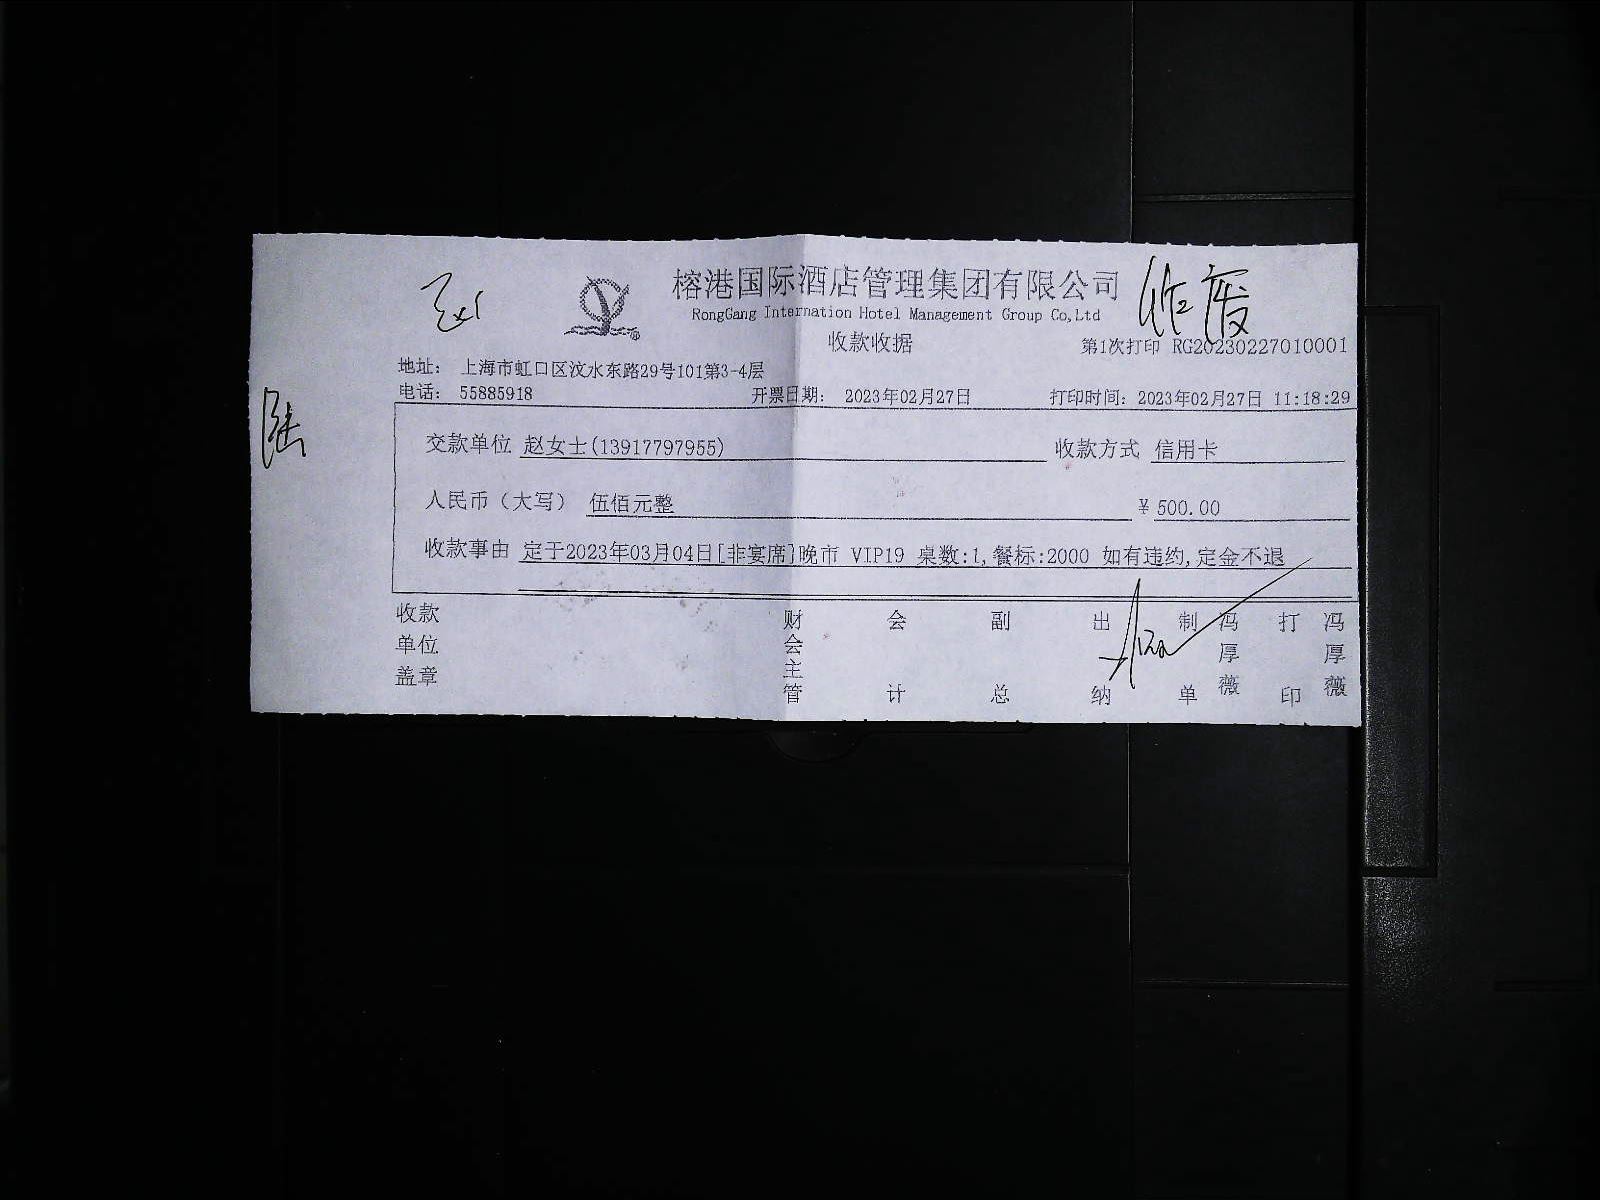 榕港国际酒店管理集团有限公司
RongGang Internation Hotel Management Group Co,Ltd
收款收据
第1次打印 RG20230227010001
地址： 上海市虹口区汶水东路29号101第3-4层
电话： 55885918 开票日期： 2023年02月27日 打印时间：2023年02月27日 11:18:29
陆
交款单位 赵女士(13917797955) 收款方式 信用卡
人民币（大写） 伍佰元整 ¥ 500.00
收款事由 定于2023年03月04日[非宴席]晚市 VIP19 桌数:1,餐标:2000 如有违约,定金不退
收款单位盖章 财会主管 会计 副总 出纳 制单 冯厚薇 打印 冯厚薇